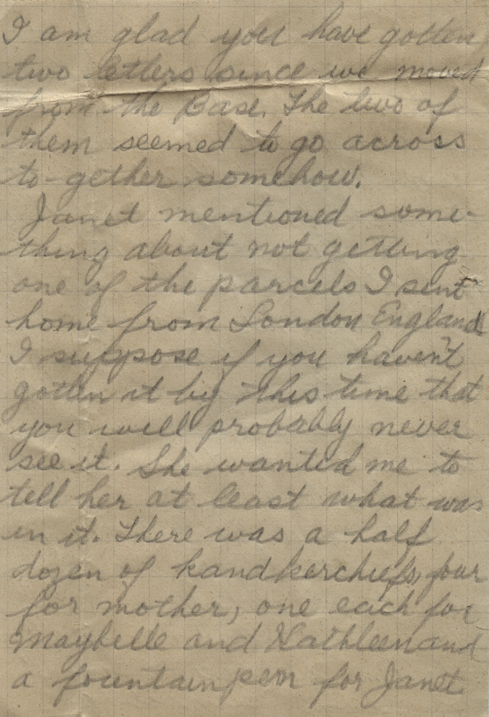 I am glad you have gotten
two letters since we moved
from the Base. The two of
them seemed to go across
to-gether somehow.
Janet mentioned some-
thing about not getting
one of the parcels I sent
home from London England
I suppose if you haven't
gotten it by this time that
you will probably never
see it. She wanted me to
tell her at least what was
in it. There was a half
dozen of handkerchiefs, four
for mother, one each for
Maybelle and Kathleen and
a fountain pen for Janet.